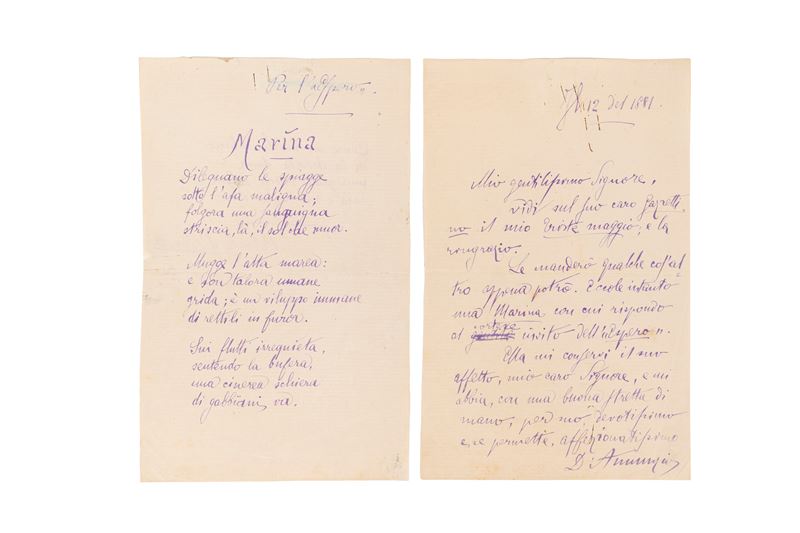 Per l'"Espero".
Marina
Dileguano le spiagge
sotto l'afa maligna;
folgora una sanguigna
striscia, là, il sol che muor.
Mugge l'alta marea:
e son talora umane
grida; è un viluppo immane
di rettili in furor.
Sui flutti irrequieta,
sentendo la bufera,
una cinerea schiera
di gabbiani va.
Il 12 del 1881.
Mio gentilissimo Signore,
vidi sul suo caro Gazzetti-
no il mio Triste maggio; e la
rongrazio.
Le manderò qualche cos'al-
tro appena potrò. Eccole intanto
una Marina con cui rispondo
al cortese invito dell'"Espero".
Ella mi conservi il suo
affetto, mio caro Signore, e mi
abbia, con una buona stretta di
mano, per suo devotissimo
e, se permette, affezionatissimo
D'Annunzio